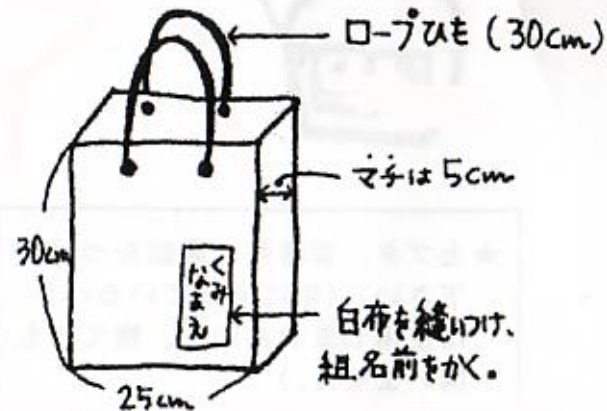 ロープひも（30cm）
マチは5cm
30cm
くみ
なまえ
白布を縫いつけ、
組名前をかく。
25cm